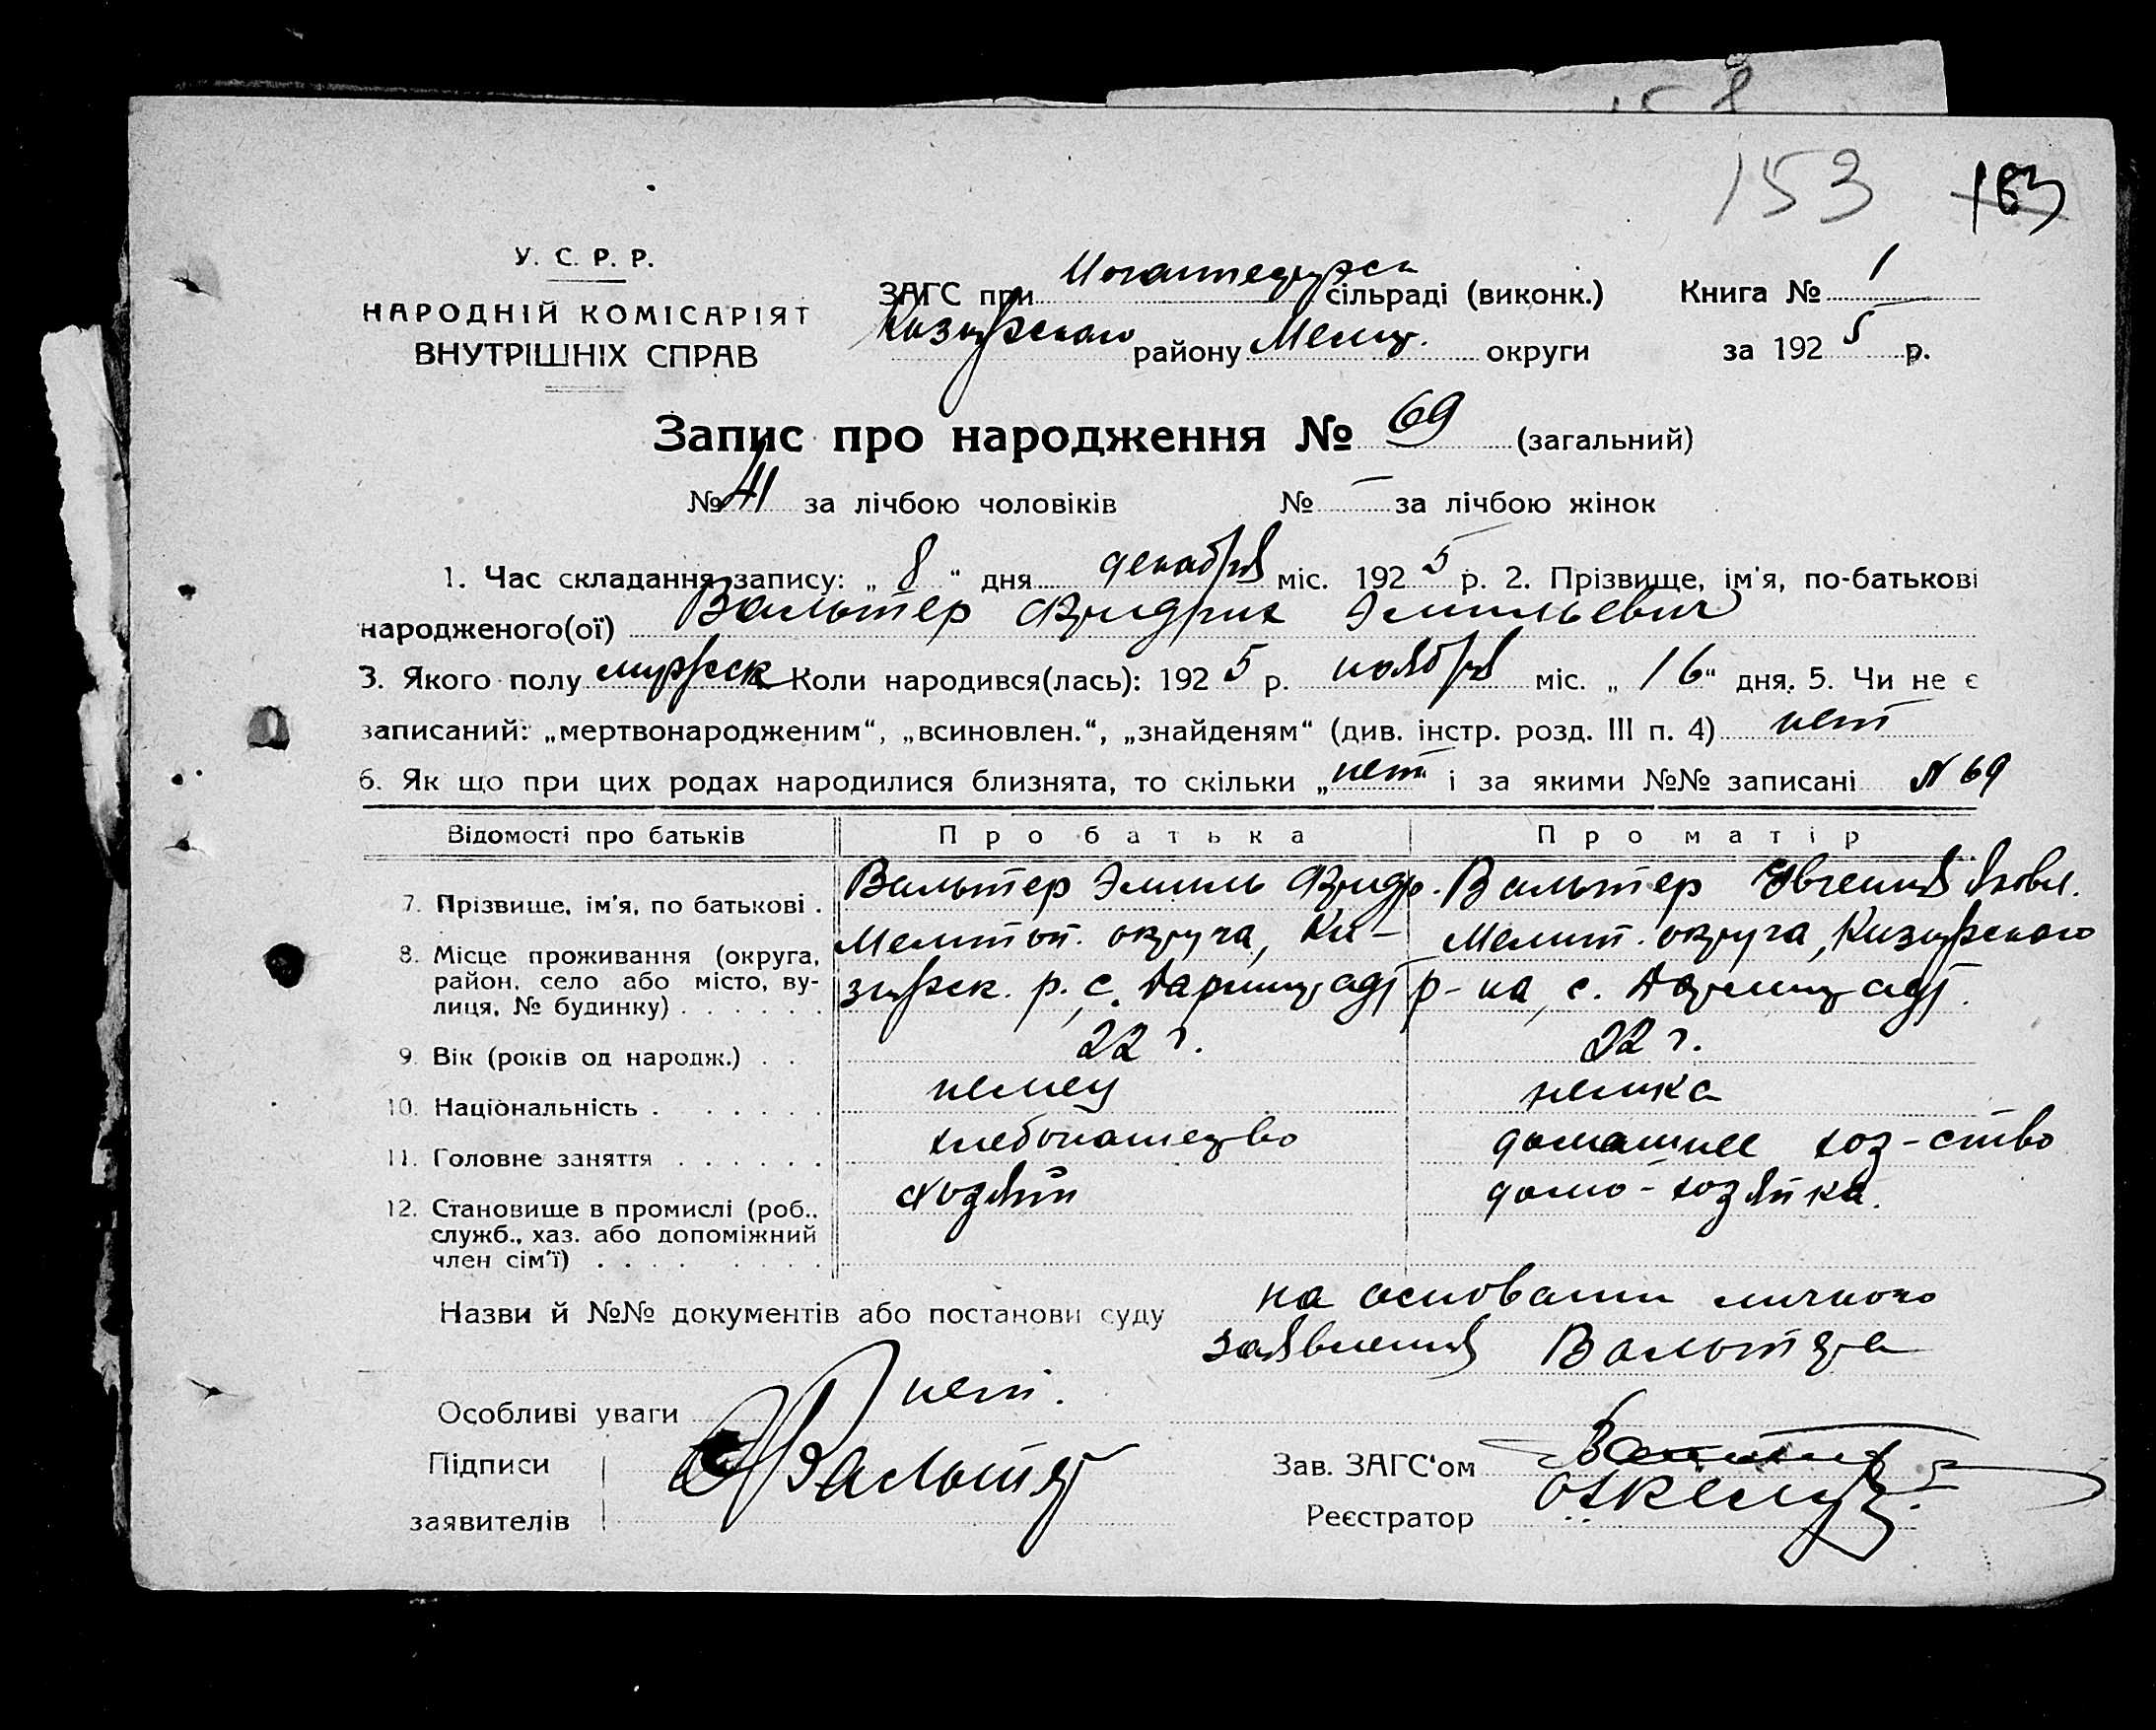 153 163
У. С. Р. Р.
НАРОДНІЙ КОМІСАРІЯТ
ВНУТРІШНІХ СПРАВ
ЗАГС при сільраді (виконк.) Книга № 1
району Мелит. округи за 192 5 р.
Запис про народження № 69 (загальний)
№ 41 за лічбою чоловіків № — за лічбою жінок
1. Час складання запису: „ 8 “ дня декабря міс. 192 5 р. 2. Прізвище, ім'я, по-батькові
народженого(ої) Вальтер Фридрих Эмильевич
3. Якого полу мужск Коли народився(лась): 192 5 р. ноября міс. „ 16 “ дня. 5. Чи не є
записаний: „мертвонародженим“, „всиновлен.“, „знайденям“ (див. інстр. розд. III п. 4) нет
6. Як що при цих родах народилися близнята, то скільки „ нет “ і за якими №№ записані N 69
Відомості про батьків Про батька Про матір
7. Прізвище, ім'я, по батькові . Вальтер Эмиль Фридр. Вальтер Евгения Яковл.
8. Місце проживання (округа, район, село або місто, вулиця, № будинку) Мелитоп. округа, р. с. Дармштадт Мелит. округа, р-на, с. Дармштадт.
9. Вік (років од народж.) . . 22 г. 22 г.
10. Національність . немец немка
11. Головне заняття хлебопашество домашнее хоз-ство
12. Становище в промислі (роб., служб., хаз. або допоміжний член сім'ї) хозяин домо-хозяйка.
Назви й №№ документів або постанови суду на основании личного
заявления Вальтера
Особливі уваги нет.
Підписи Вальтер Зав. ЗАГС'ом
заявителів Реєстратор